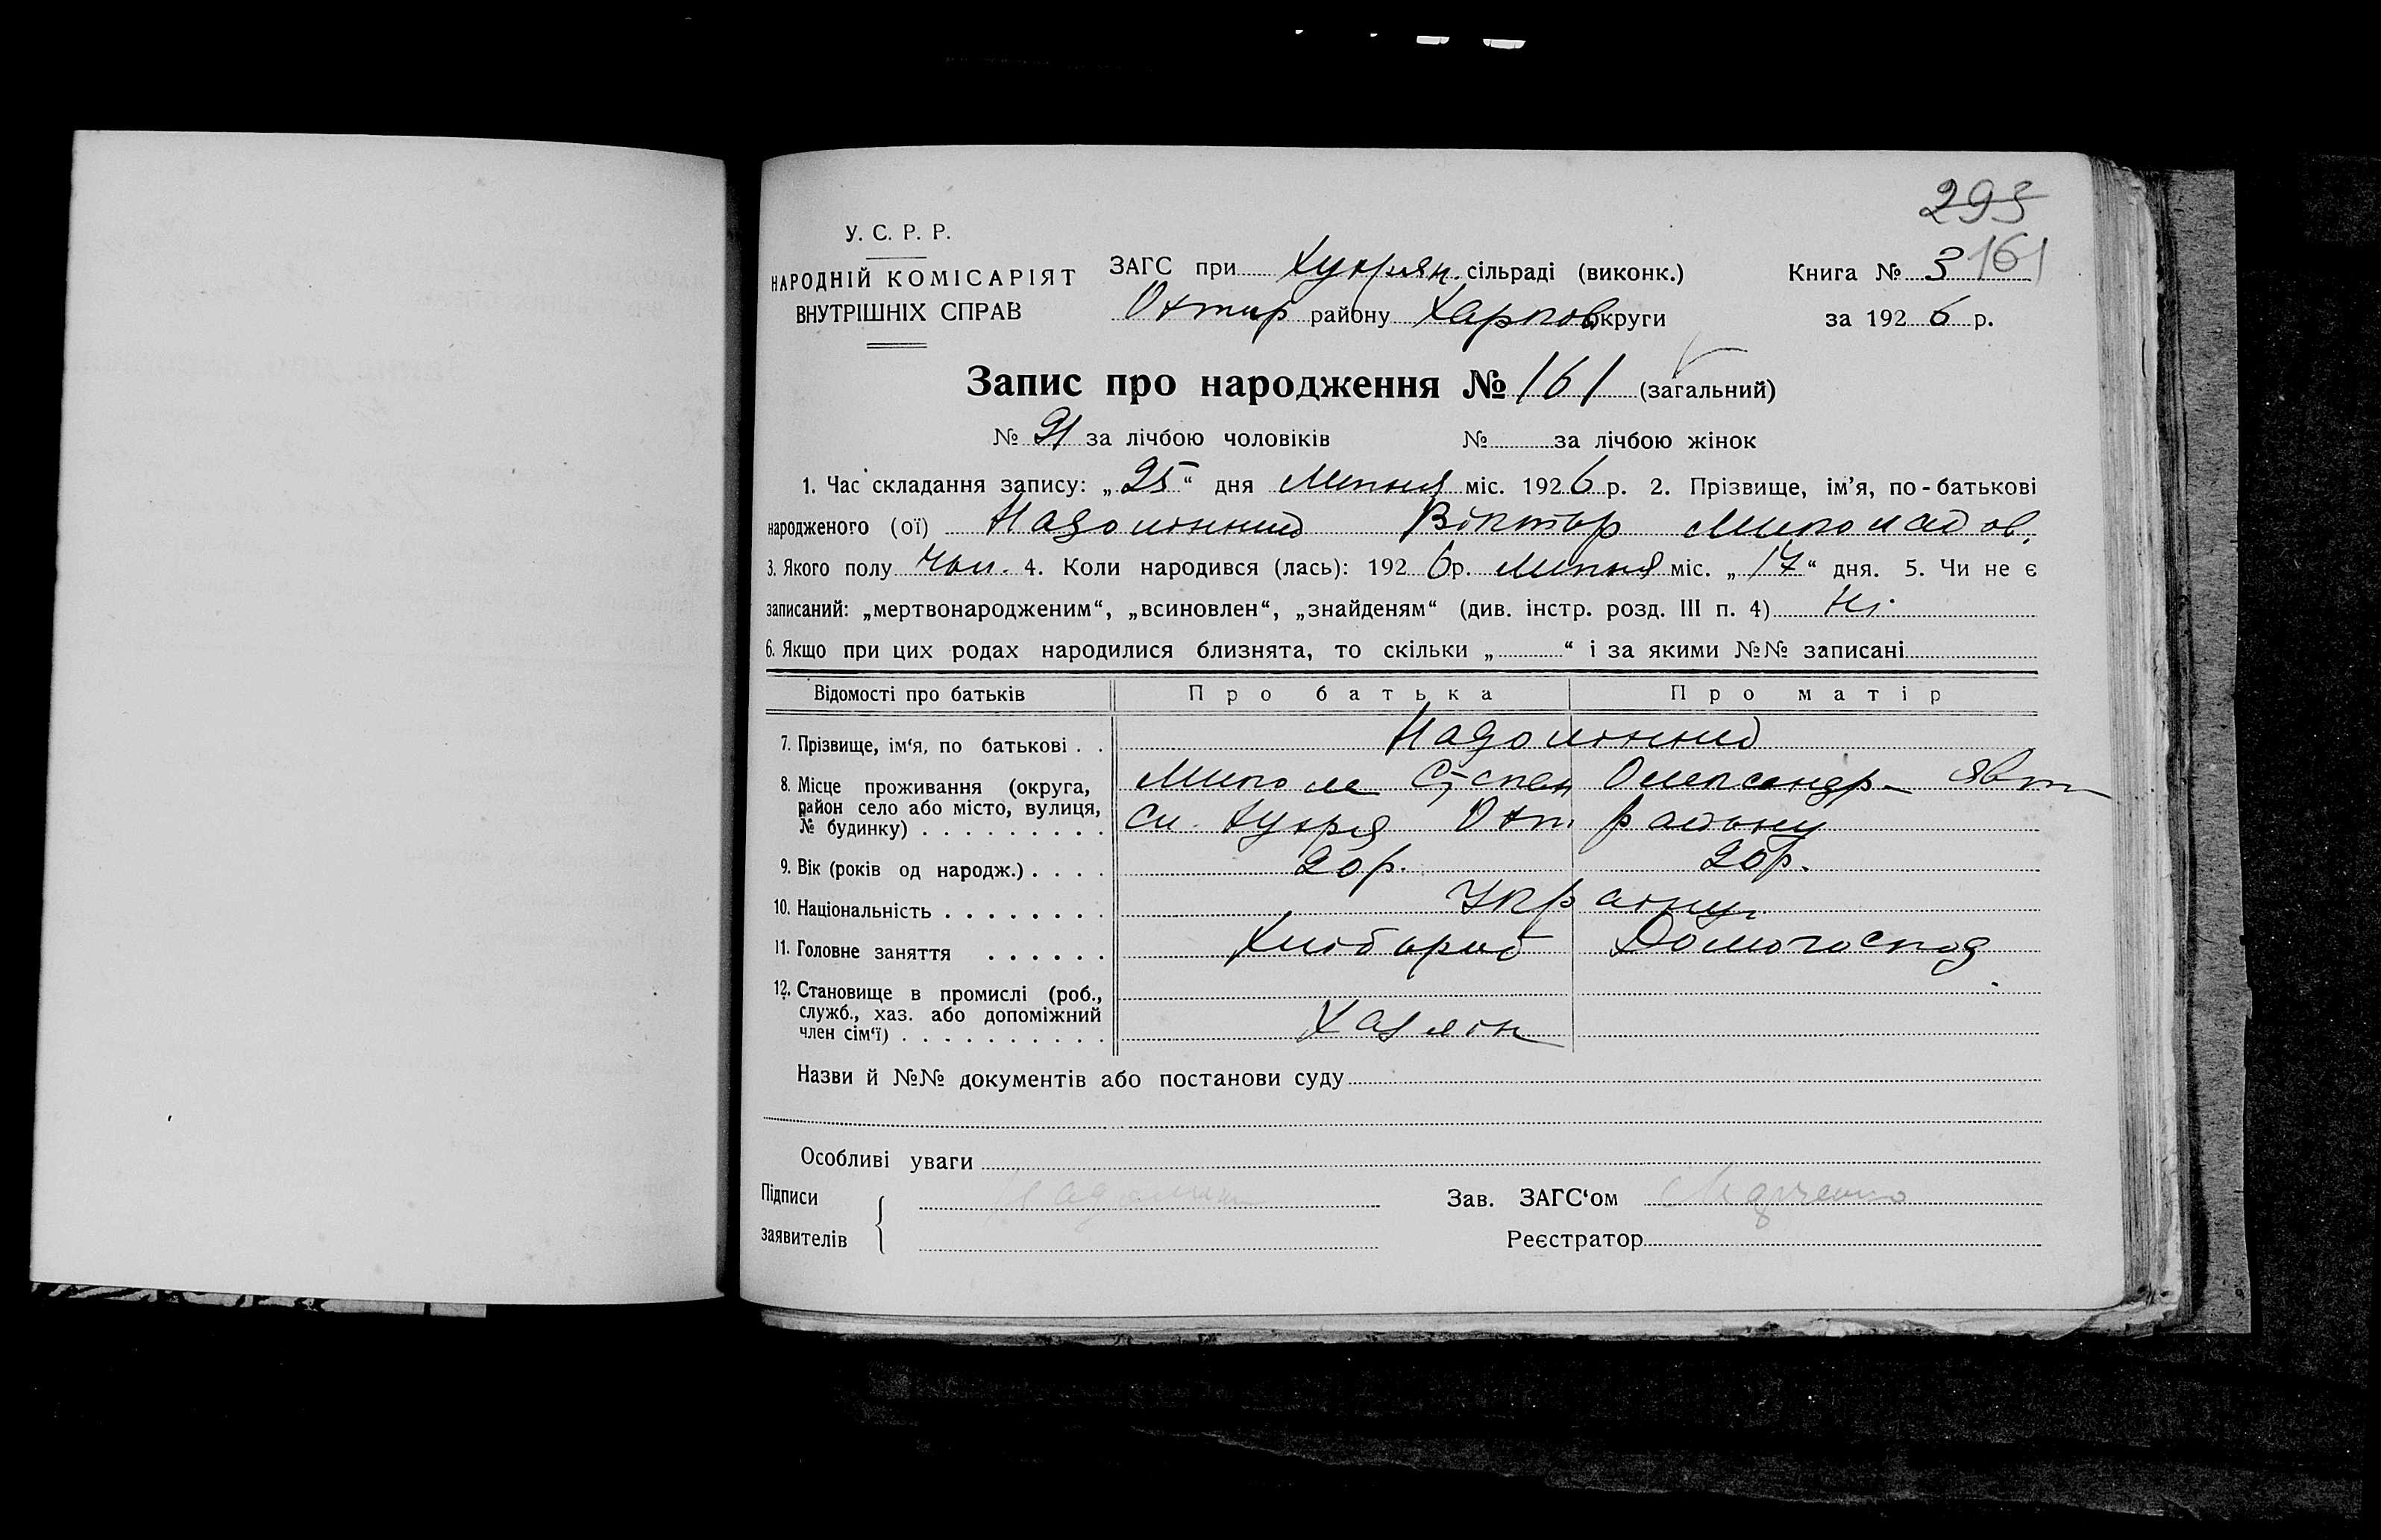 293
У. С. Р. Р.
НАРОДНІЙ КОМІСАРІЯТ
ВНУТРІШНІХ СПРАВ
ЗАГС при Хухрян. сільраді (виконк.)
Охтир району Харков округи
Книга № 3 161
за 1926 р.
Запис про народження № 161 (загальний)
№ 91 за лічбою чоловіків № за лічбою жінок
1. Час складання запису: „25“ дня Липня міс. 1926 р. 2. Прізвище, ім’я, по-батькові
народженого (ої) Надолинний Віктор Миколайов.
3. Якого полу Чол. 4. Коли народився (лась): 1926р. Липня міс. „17“ дня. 5. Чи не є
записаний: „мертвонародженим“, „всиновлен“, „знайденям“ (див. інстр. розд. III п. 4) Ні
6. Якщо при цих родах народилися близнята, то скільки „ “ і за якими №№ записані
Відомості про батьків Про батька Про матір
7. Прізвище, ім‘я, по батькові . . Надолинний
8. Місце проживання (округа, Микола Степан Олександр Явт
район село або місто, вулиця,
№ будинку) . . . . . . . . . сл. Хухря Охт. району
9. Вік (років од народж.) . . . . 20р. 20р.
10. Національність . . . . . . . . Україну
11. Головне заняття . . . . . . Хлібороб Домогоспод
12. Становище в промислі (роб.,
служб., хаз. або допоміжний
член сім‘ї) . . . . . . . . . . Хазяїн
Назви й №№ документів або постанови суду
Особливі уваги
Підписи
заявителів
Надолинн
Зав. ЗАГС‘ом
Реєстратор